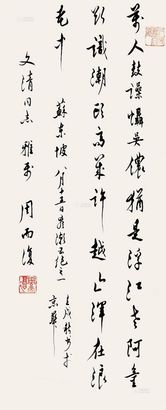 万人鼓譟慑吴侬犹是浮江老阿童
欲识潮头高几许越山浑在浪
花中 苏东坡八月十五日看潮五绝之一
壬戌 京华
文清同志雅属 周而复